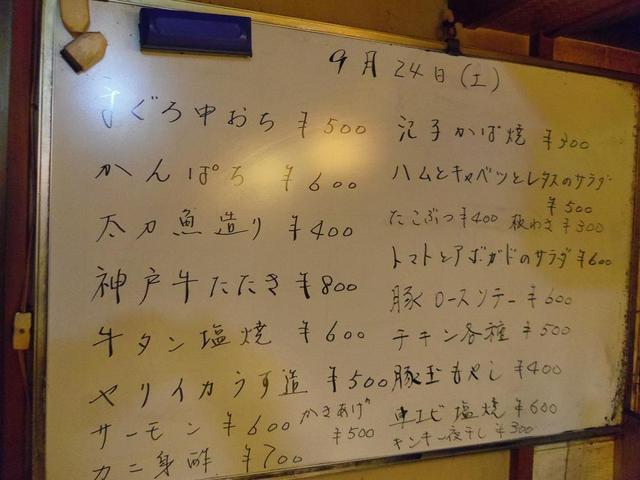 9月24日(土)
まぐろ中おち ¥500
かんぱち ¥600
太刀魚造り ¥400
神戸牛たたき ¥800
牛タン塩焼 ¥600
ヤリイカうす造 ¥500
サーモン ¥600 かきあげ ¥500
カニ身酢 ¥700
穴子かば焼 ¥300
ハムとキャベツとレタスのサラダ ¥500
たこぶつ ¥400 板わさ ¥300
トマトとアボガドのサラダ ¥600
豚ロースソテー ¥600
チキン各種 ¥500
豚玉もやし ¥400
車エビ塩焼 ¥600
キンキ一夜干し ¥300